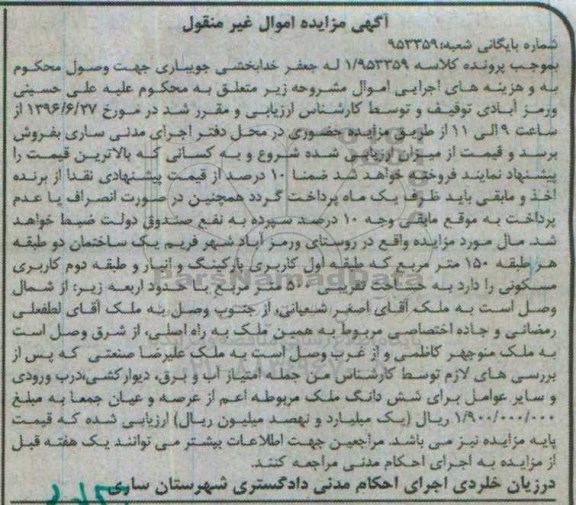 آگهی مزایده اموال غیر منقول
شماره بایگانی شعبه:۹۵۳۳۵۹
بموجب پرونده کلاسه ۱/۹۵۳۳۵۹ له جعفر خدابخشی جویباری جهت وصول محکوم
به و هزینه های اجرایی اموال مشروحه زیر متعلق به محکوم علیه علی حسینی
ورمز آبادی توقیف و توسط کارشناس ارزیابی و مقرر شد در مورخ ۱۳۹۶/۶/۲۷ از
ساعت ۹ الی ۱۱ از طریق مزایده حضوری در محل دفتر اجرای مدنی ساری بفروش
برسد و قیمت از میزان ارزیابی شده شروع و به کسانی که بالاترین قیمت را
پیشنهاد نمایند فروخته خواهد شد ضمنا ۱۰ درصد از قیمت پیشنهادی نقدا از برنده
اخذ و مابقی باید ظرف یک ماه پرداخت گردد همچنین در صورت انصراف یا عدم
پرداخت به موقع مابقی وجه ۱۰ درصد سپرده به نفع صندوق دولت ضبط خواهد
شد. مال مورد مزایده واقع در روستای ورمز آباد شهر فریم یک ساختمان دو طبقه
هر طبقه ۱۵۰ متر مربع که طبقه اول کاربری پارکینگ و انبار و طبقه دوم کاربری
مسکونی را دارد به مساحت تقریبی ۵۰۰ متر مربع با حدود اربعه زیر: از شمال
وصل است به ملک آقای اصغر شعبانی، از جنوب وصل به ملک آقای لطفعلی
رمضانی و جاده اختصاصی مربوط به همین ملک به راه اصلی، از شرق وصل است
به ملک منوچهر کاظمی و از غرب وصل است به ملک علیرضا صنعتی که پس از
بررسی های لازم توسط کارشناس من جمله امتیاز آب و برق، دیوارکشی،درب ورودی
و سایر عوامل برای شش دانگ ملک مربوطه اعم از عرصه و عیان جمعا به مبلغ
۱/۹۰۰/۰۰۰/۰۰۰ ریال (یک میلیارد و نهصد میلیون ریال) ارزیابی شده که قیمت
پایه مزایده نیز می باشد. مراجعین جهت اطلاعات بیشتر می توانند یک هفته قبل
از مزایده به اجرای احکام مدنی مراجعه کنند.
درزیان خلردی اجرای احکام مدنی دادگستری شهرستان ساری